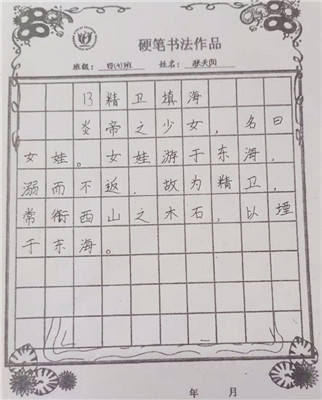 硬笔书法作品
班级：四(4)班 姓名：
13精卫填海
炎帝之少女，名曰
女娃。女娃游于东海，
溺而不返，故为精卫，
常衔西山之木石，以堙
于东海。
年 月